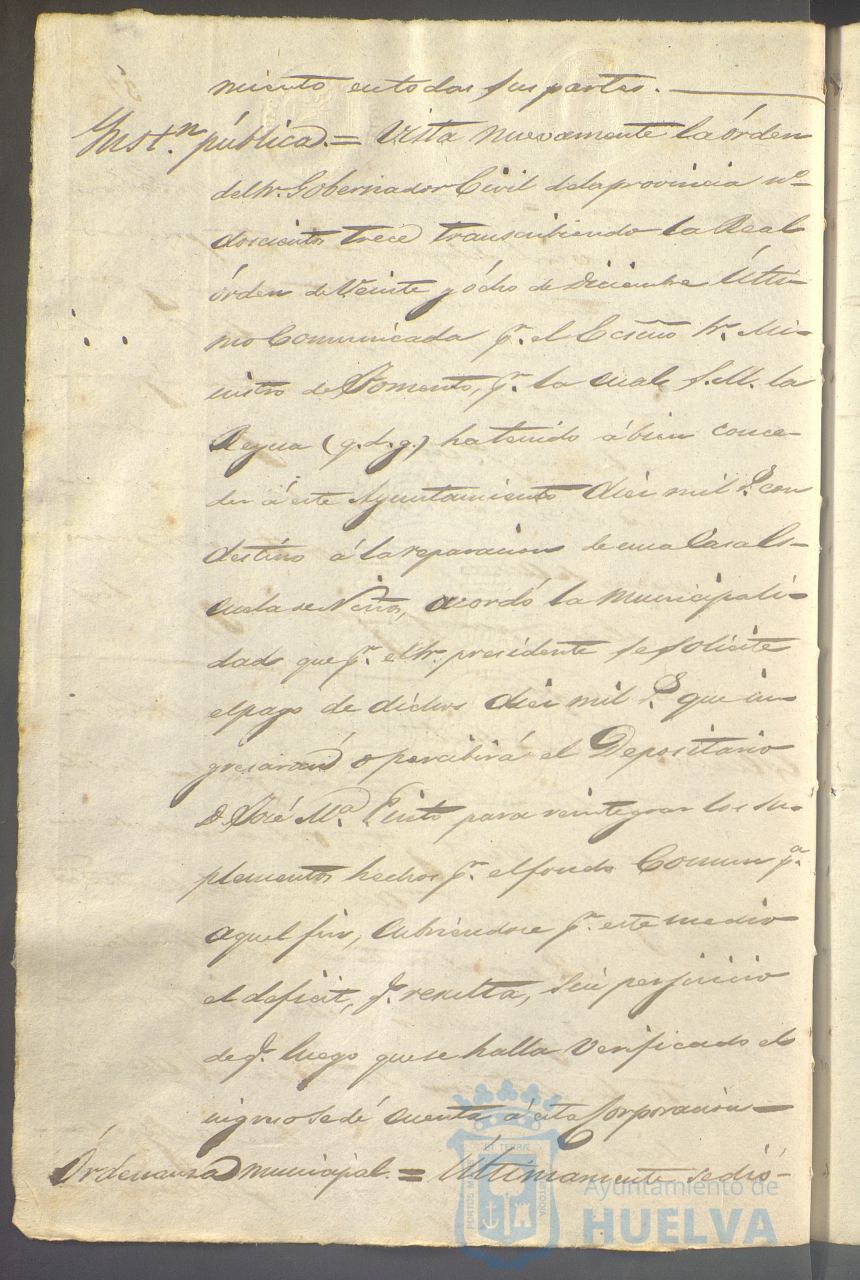 miento en todas sus partes.
Inst.n pública = Vista nuevamente la órden
del Sr. Gobernador Civil de la provincia no
doscientos trece transcribiendo la Real
órden de Veinte y ócho de Diciembre Últi-
mo Comunicada pr. el Ecsmo Sr. Mi-
nistro de Fomento, pr. la cual S.M. la
Reyna (q.d.g.) ha tenido á bien conce-
der á este Ayuntamiento diez mil rs. con
destino á la reparacion de una Casa Es-
cuela de Niños, acordó la municipali-
dad que pr. el Sr. presidente se solicite
el pago de dichos diez mil rs. que in-
gresará ó percibirá el Depositario
D José Ma. Pinto para reintegrar los su-
plementos hechos pr. el fondo Comun pa.
aquel fin, cubriendose pr. este medio
el deficit, q. resulta, sin perjuicio
de q. luego que se halla verificado el
ingreso se dé cuenta á esta Corporacion
Órdenanza municipal. = Últimamente se dió
PORTUS M
ET TERRÆ
CUSTODIA
Ayuntamiento de
HUELVA